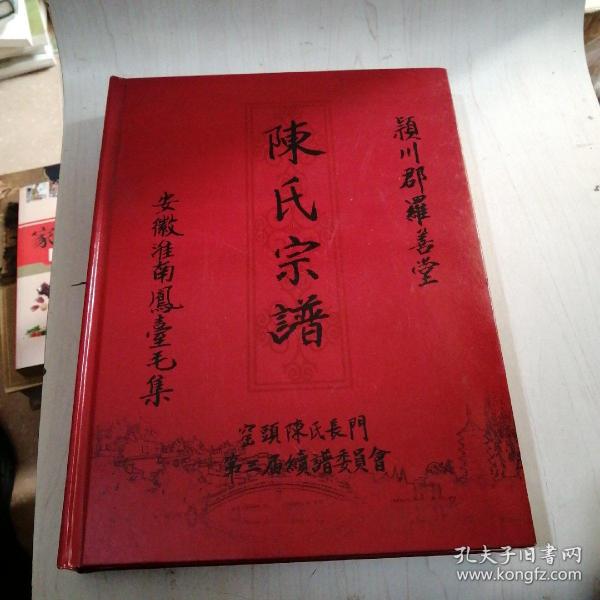 潁川郡羅善堂
陳氏宗譜
安徽淮南鳳臺毛集
窑頭陳氏長門
第三届續譜委員會
家
孔夫子旧书网
www.kongfz.com